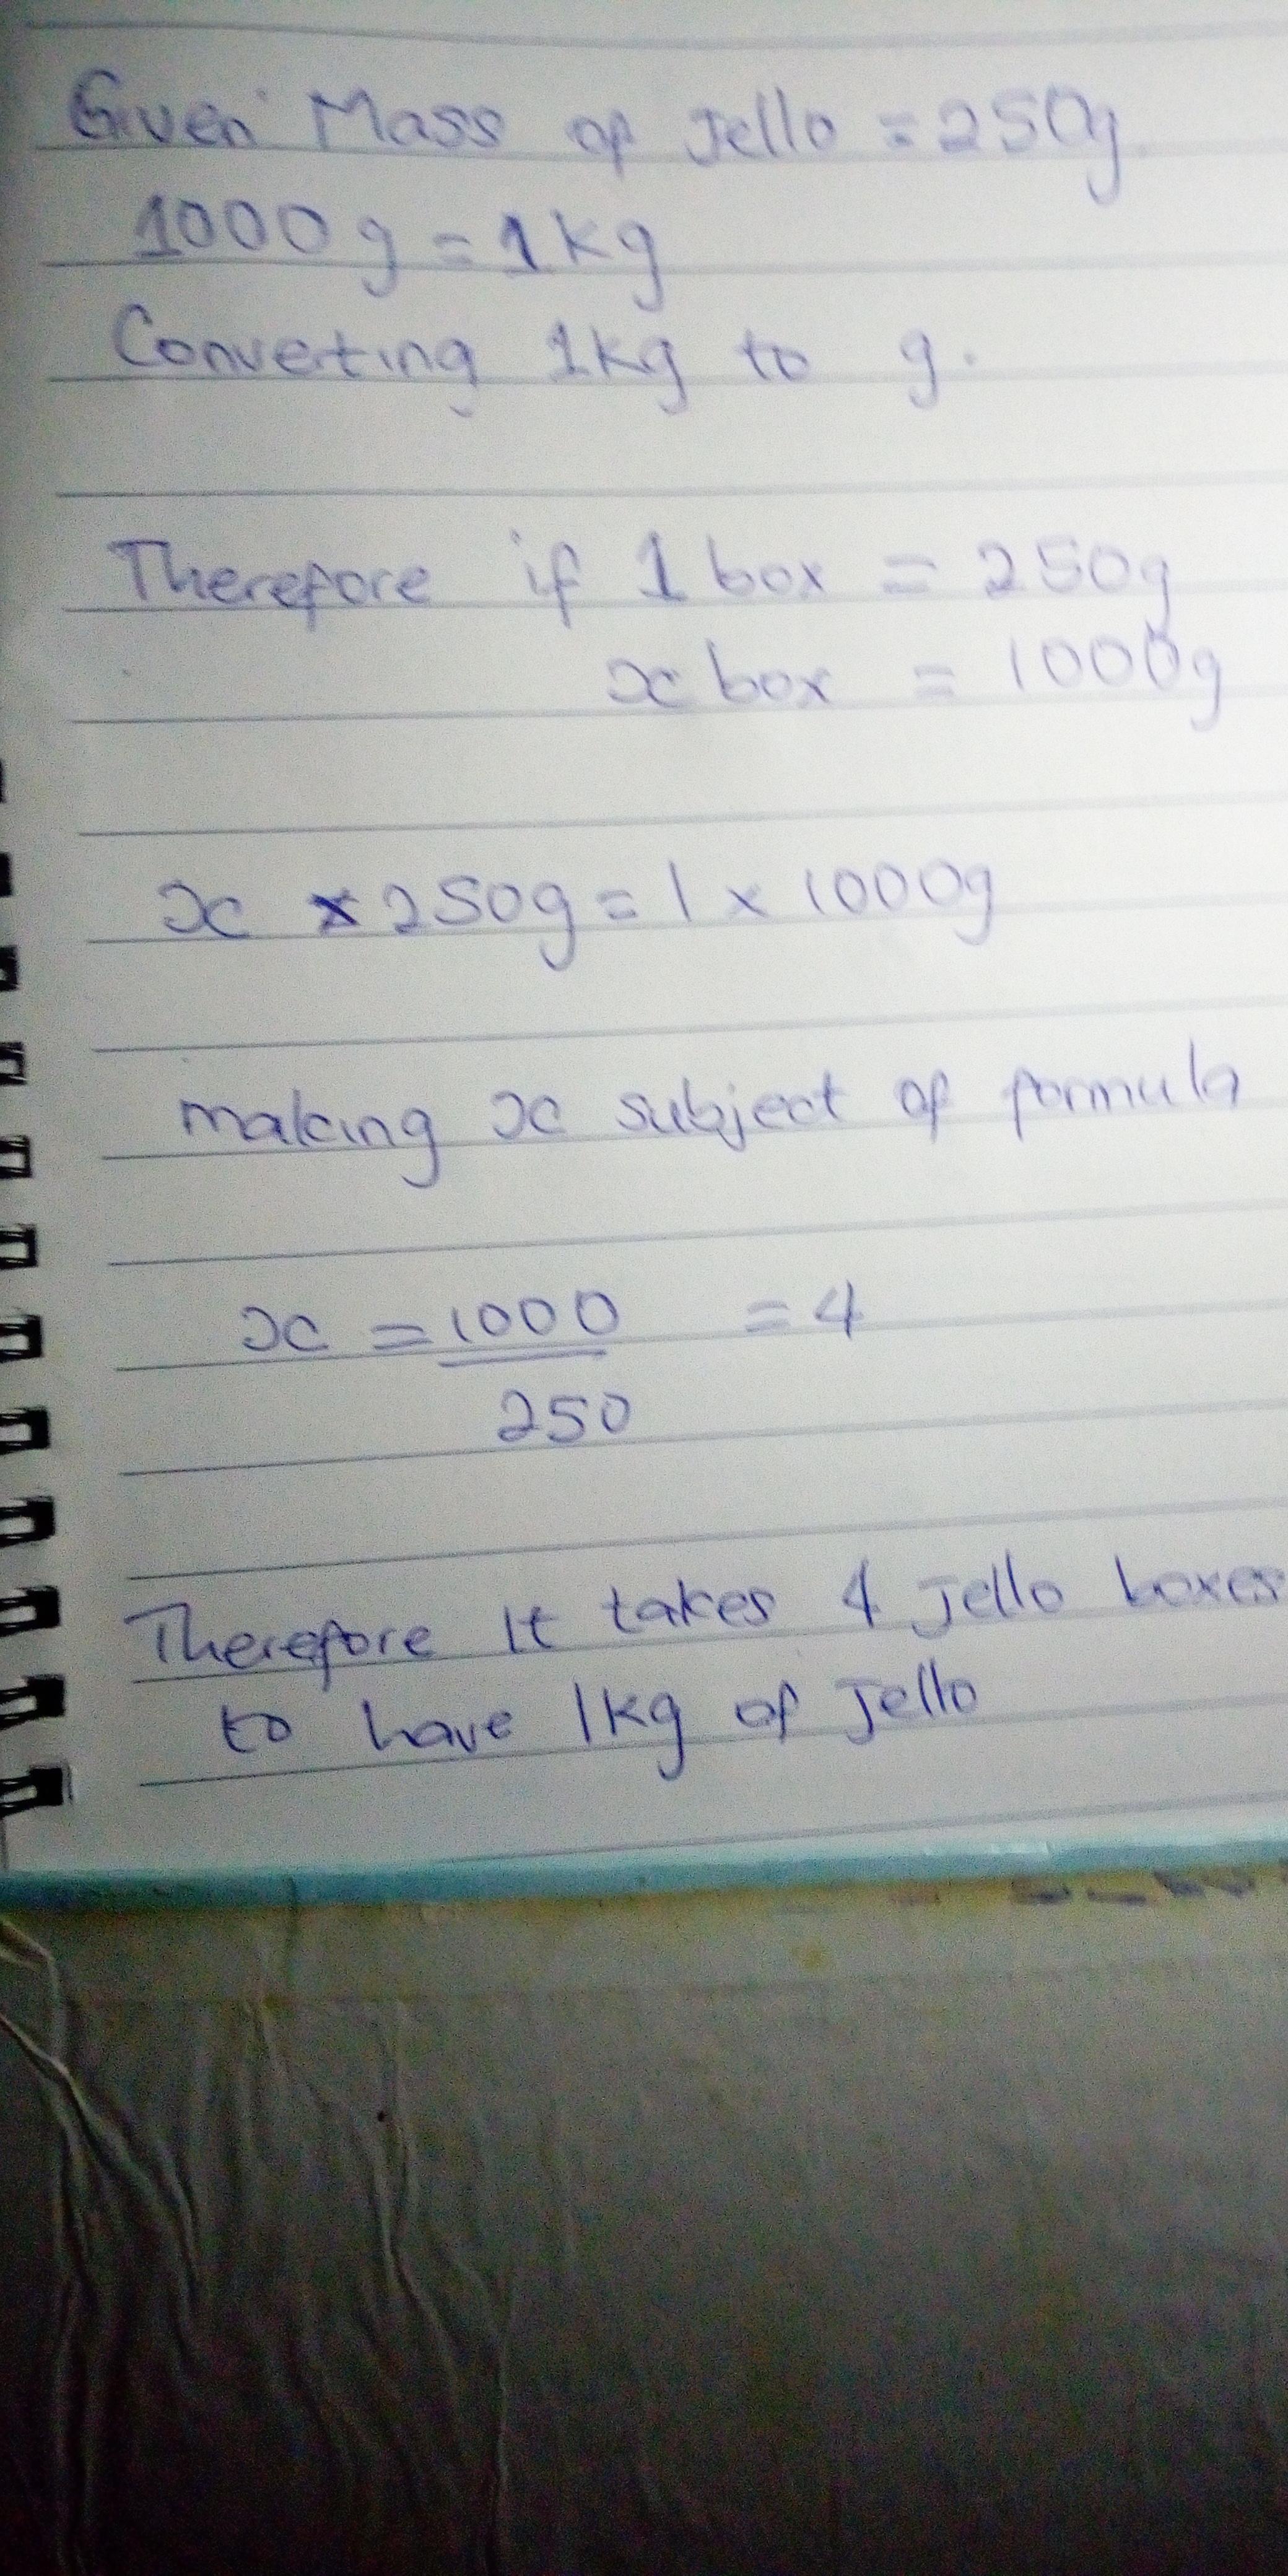 Given Mass of Jello = 250g
1000g = 1kg
Converting 1kg to g.
Therefore if 1 box = 250g
x box = 1000g
x × 250g = 1 × 1000g
making x subject of formula
x = 1000 = 4
250
Therefore It takes 4 Jello boxes
to have 1kg of Jello